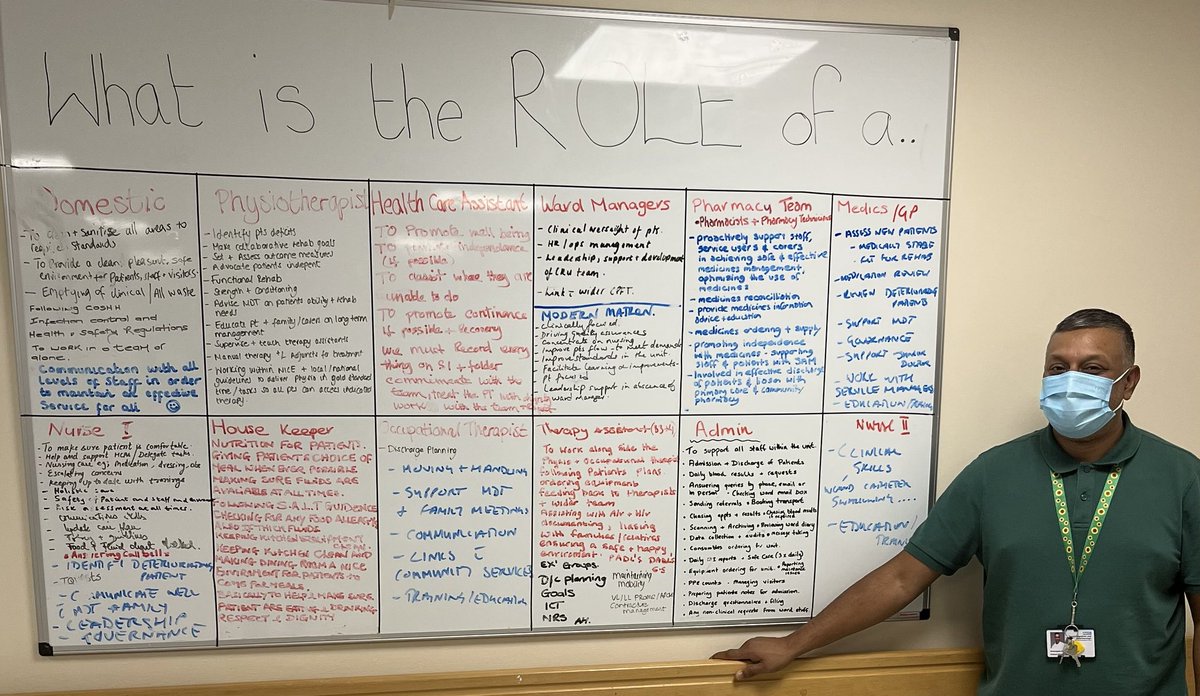 What is the ROLE of a..
Domestic
- To clean + Sanitise all areas to
required Standards
- To Provide a clean, pleasant, safe
Environment for Patients, staff + visitors.
- Emptying of clinical / All waste
Following COSHH
Infection control and
Health + Safety Regulations
To work in a team or
alone.
Communication with all
levels of Staff in order
to maintain an effective
Service for all
Physiotherapist
- Identify pts deficits
- Make collaborative rehab goals
- Set + Assess outcome measures
- Advocate patients indepent
- Functional Rehab
- Strength + conditioning
- Advise MDT on patients ability + rehab
needs
- Educate pt + family/carers on long term
management
- Supervise + teach therapy assistants
- Manual therapy Adjuncts to treatment
- Working within NICE + local/national
guidelines to deliver physio in gold standard
time/tasks so all pts can access indicated
therapy
Health Care Assistant
To Promote well being
To independence
(is possible)
To assist where they are
unable to do
To promote continence
is possible + Recovery
We must Record every
thing on S1 + folder
communicate with the
team, treat the PT with dignity
work with the team, respect
Ward Managers
- Clinical oversight of pts.
- HR / ops management
- Leadership, support + development
of CRU team.
- Link wider CPFT.
MODERN MATRON.
- Clinically focused.
- Driving quality assurances
- Concentrate on nursing
- Improve pts flow - to meet demands
- Improve standards in the unit
- Facilitate learning or improvements.
- Pt focused
- Leadership support in absence of
ward Manager.
Pharmacy Team
• Pharmacists + Pharmacy Technicians
- proactively support staff,
service users & carers
in achieving safe & effective
medicines management,
optimising the use of
medicines
- medicines reconciliation
- provide medicines information
advice + education
- medicines ordering + supply
- promoting independence
with medicines - supporting
staff & patients with SAM
- Involved in effective discharge
of patients & liason with
primary care & community
pharmacy
Medics / GP
- ASSESS NEW PATIENTS
- MEDICALLY STABLE
- FIT FOR REHAB
- MEDICATION REVIEW
- REVIEW DETERIORATING
PATIENTS
- SUPPORT MDT
- GOVERNANCE
- SUPPORT JUNIOR
DOCTOR
- WORK WITH
SERVICE MANAGERS
- EDUCATION/TRAINING
Nurse I
- To make sure patient is comfortable.
- Help and support HCAs / Delegate tasks.
- Nursing care eg; medication, dressing, obs
- Escalating concerns
- Keeping up to date with trainings
- Holistic care
- Safety of Patient and staff and
- Risk assessment at all times.
- Communication skills
- Update care plan
- Food & fluid chart
• Answering call bells.
- IDENTIFY DETERIORATING
PATIENT
- COMMUNICATE WELL
( MDT FAMILY
- LEADERSHIP
- GOVERNANCE
House Keeper
NUTRITION FOR PATIENTS.
GIVING PATIENTS CHOICE OF
MEAL WHEN EVER POSSIBLE
MAKING SURE FLUIDS ARE
AVAILABLE AT ALL TIMES.
FOLLOWING S.A.L.T GUIDENCE
CHECKING FOR ANY FOOD ALLERGYS
ALSO THICK FLUIDS
KEEPING KITCHEN EQUIPMENT
CLEAN
KEEPING KITCHEN CLEAN AND
MAKING DINING ROOM A NICE
ENVIROMENT FOR PATIENTS TO
COME FOR MEALS
BASICALLY TO HELP & MAKE SURE
PATIENT ARE EATING & DRINKING
RESPECT & DIGNITY
Occupational Therapist
Discharge Planning
- MOVING + HANDLING
- SUPPORT MDT
+ FAMILY MEETINGS
- COMMUNICATION
- LINKS
COMMUNITY SERVICES
- TRAINING/EDUCATION
Therapy Assistant (B3-4)
To work along side the
Physio + Occupational therapist
following Patients plans
ordering equipment
feeding back to therapists
+ wider team
Assisting with AV + HV
documenting, liasing
with families/relatives
ensuring a safe + happy,
enviroment. PADL'S DADLS
Ex' Groups
D/C planning
Goals
ICT
NRS
maintaining
mobility
contracture
management
Admin
To support all staff within the unit.
• Admission + Discharge of Patients
• Daily blood results + requests
• Answering queries by phone, email or
in person - Checking ward email box
• Sending referrals • Booking transport
• Chasing appts + results
• Scanning + Archiving • Reviewing ward diary
• Data collection + audits • message taking
• Consumables ordering for unit
• Daily reports • Safe Care (3x daily)
• Equipment ordering for unit. • Reporting
maintenance
issues
• PPE counts • Managing visitors
• Preparing patients notes for admission.
• Discharge questionnaire + filing
• Any non-clinical requests from ward staff.
Nurse II
- CLINICAL
SKILLS
IV CANNULA CATHETER
- EDUCATION/
TRAINING